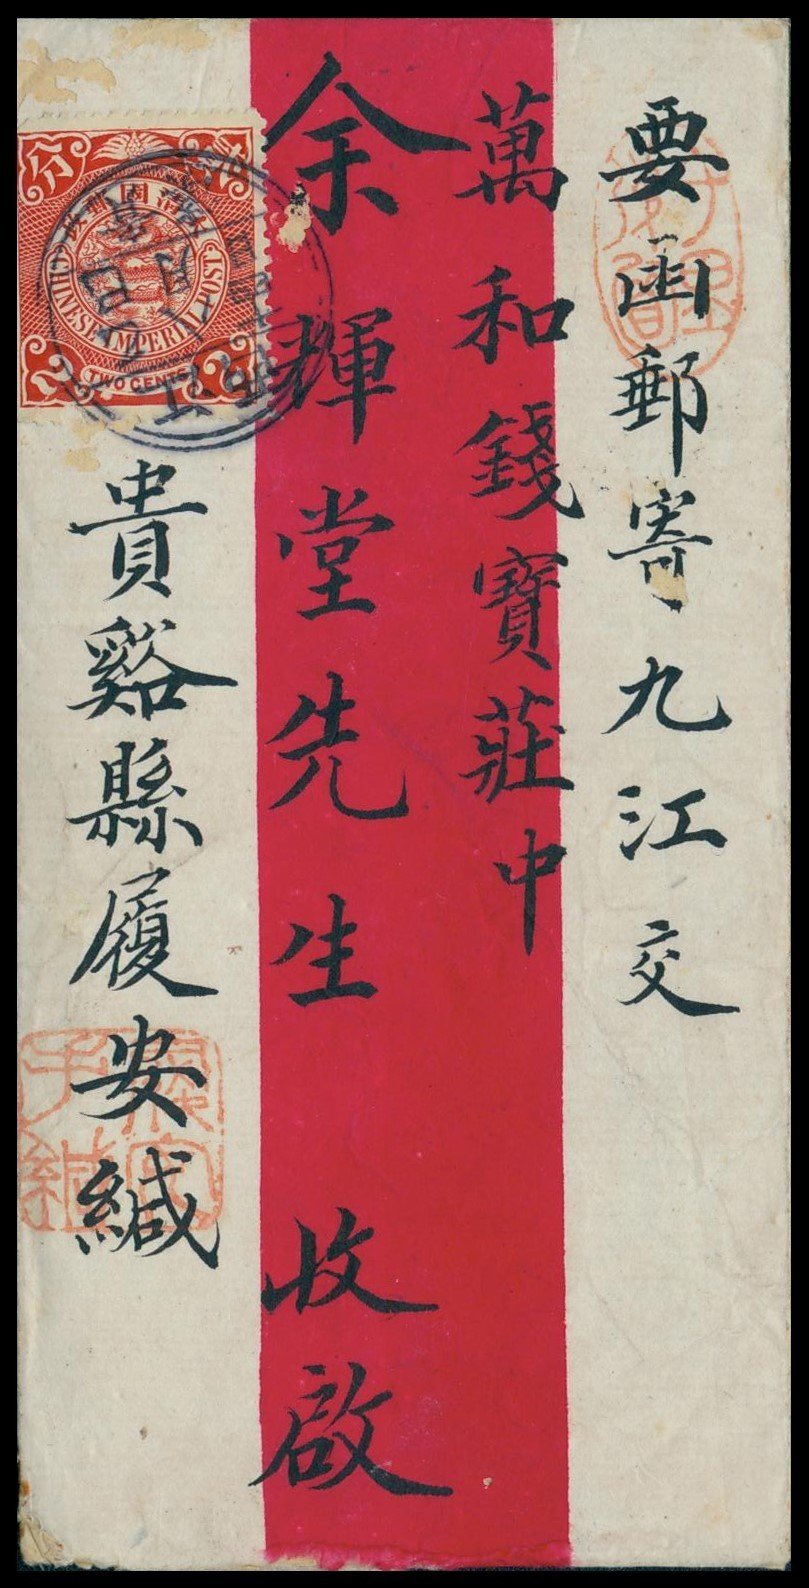 要函郵寄九江交
萬和錢寶莊中
余輝堂先生 收啟
貴谿縣履安緘
分
CHINESE IMPERIAL POST
2 2
TWO CENTS